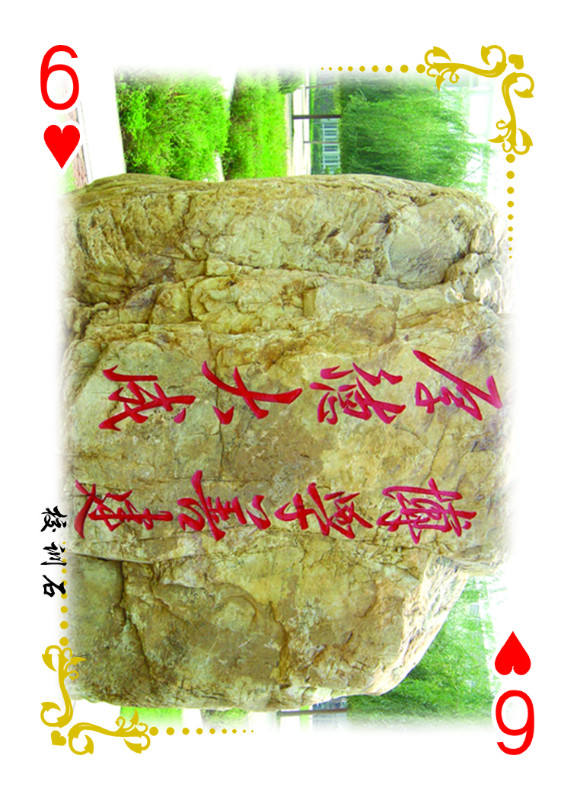 6
博学善建
厚德大成
校训石
6